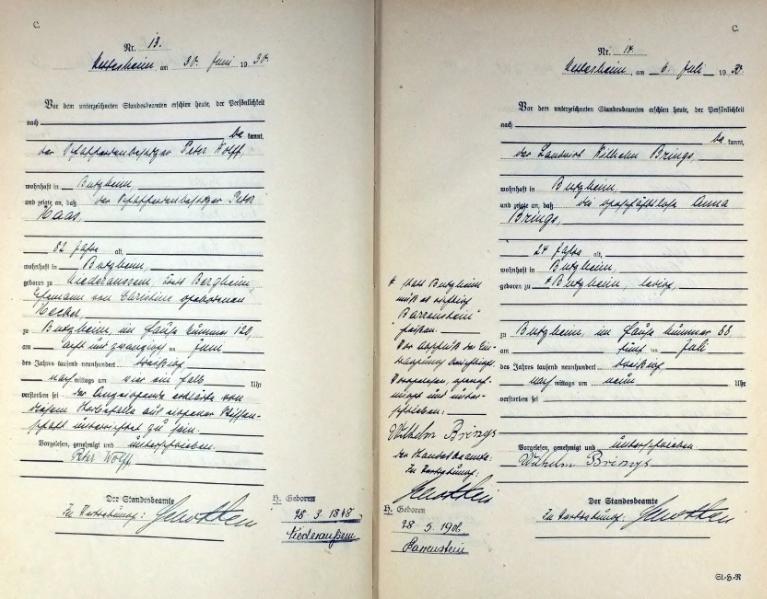 C.
Nr. 13.
Nettesheim, am 30. Juni 1930.
Vor dem unterzeichneten Standesbeamten erschien heute, der Persönlichkeit
nach
be kannt,
der Peter Wolff,
wohnhaft in Butzheim,
und zeigte an, daß der Peter
Haas,
82 Jahre alt,
wohnhaft in Butzheim,
geboren zu Niederaussem, Bergheim,
Ehemann von Christine geborenen
zu Butzheim, im Hause Nummer 120,
am acht und zwanzigsten Juni
des Jahres tausend neunhundert dreißig
nachmittags um vier ein halb Uhr
verstorben sei. Der Anzeigende erklärte von
diesem Sterbefalle aus eigener Wissen-
schaft unterrichtet zu sein.
Vorgelesen, genehmigt und unterschrieben
Peter Wolff
Der Standesbeamte
In Vertretung:
H. Geboren
28.3.1848
Niederaußem
C.
Nr. 14.
Nettesheim, am 6. Juli 1930.
Vor dem unterzeichneten Standesbeamten erschien heute, der Persönlichkeit
nach
be kannt,
der Landwirt Wilhelm Brings,
wohnhaft in Butzheim,
und zeigte an, daß die geschäftslose Anna
Brings,
24 Jahre alt,
wohnhaft in Butzheim,
geboren zu * Butzheim, ledig,
zu Butzheim, im Hause Nummer 88
am fünften Juli
des Jahres tausend neunhundert dreißig
nachmittags um neun Uhr
verstorben sei
Vorgelesen, genehmigt und unterschrieben
Wilhelm Brings
Der Standesbeamte
In Vertretung:
* statt Butzheim
muß es richtig
Barrenstein
heißen.
Vorgelesen, geneh-
migt und unter-
schrieben:
Wilhelm Brings
Der Standesbeamte:
In Vertretung:
H. Geboren
28.5.1906
Barrenstein
St.-H.-R